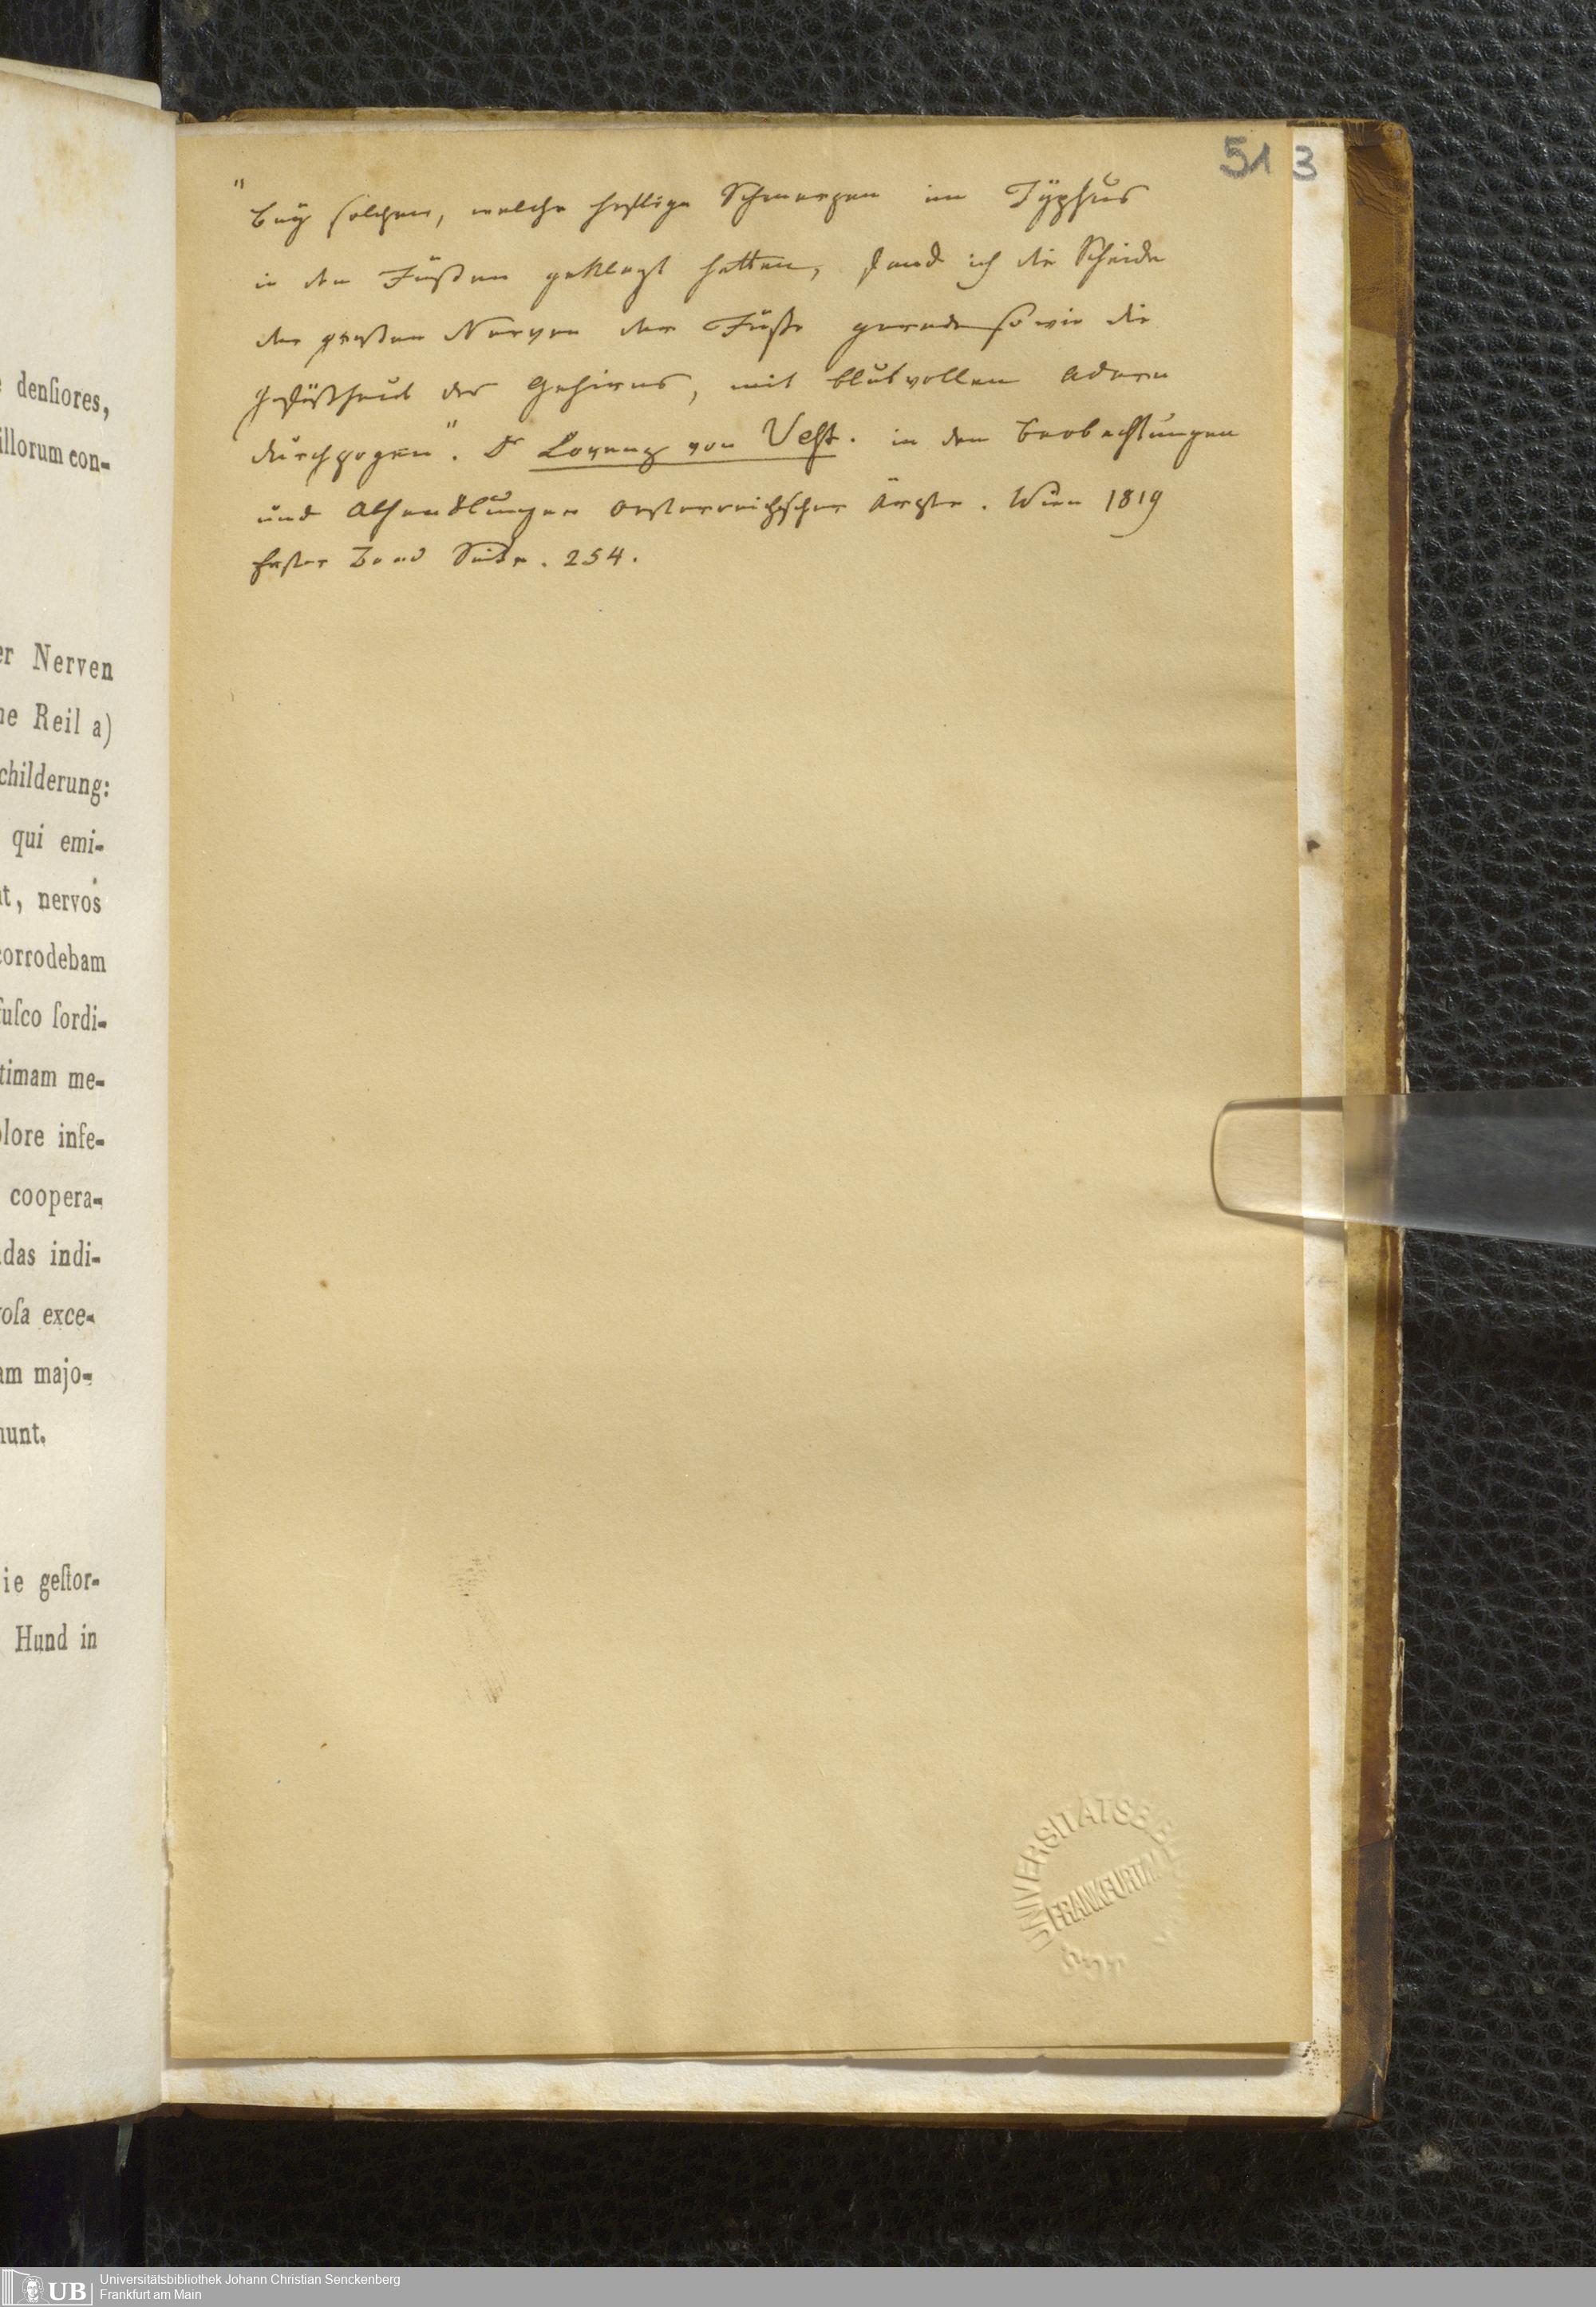 e denſiores,
illorum con-
er Nerven
ne Reil a)
childerung:
qui emi-
nt, nervos
corrodebam
fuſco ſordi-
timam me-
olore infe-
coopera-
adas indi-
roſa exce-
am majo-
nunt.
ie geſtor-
Hund in
51 3
"Bey solchen, welche heftige Schmerzen im Typhus
in den Füßen geklagt hatten, fand ich die Scheide
der großen Nerven der Füße geradesowie die
Gefäßhaut des Gehirns, mit blutvollen Adern
durchzogen". Dr Lorenz von Vest. in den Beobachtungen
und Abhandlungen oesterreichischer Ärzte. Wien 1819
Erster Band Seite. 254.
UNIVERSITÄTSBIBL
FRANKFURT/M.
UB
Universitätsbibliothek Johann Christian Senckenberg
Frankfurt am Main